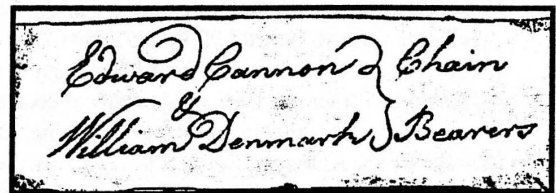 Edward Cannon } Chain
&
William Denmark } Bearers